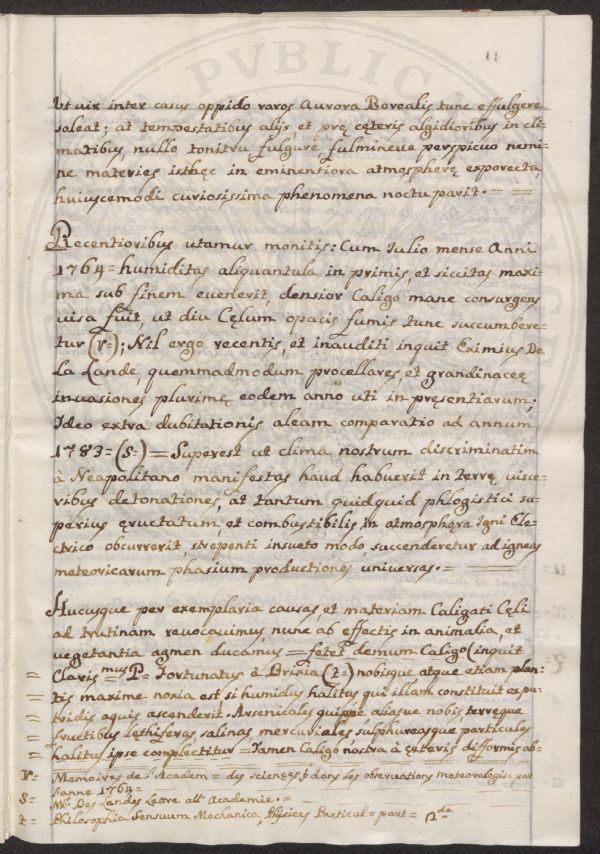 11
Ut vix inter casus oppido raros Aurora Borealis tunc effulgere
soleat; at tempestatibus alijs, et prę cęteris algidioribus in cli=
matibus, nullo tonitru fulgure, fulmineve perspicuo nemi=
ne materies isthęc in eminentiora atmospherę exporecta,
huiuscemodi curiosissima phenomena noctu parit. = =
Recentioribus utamur monitis: Cum Iulio mense Anni
1764= humiditas aliquantula in primis, et siccitas maxi=
ma sub finem evenerit, densior Caligo mane consurgens
visa fuit, ut diu Cęlum opacis fumis tunc succumbere=
tur (r=); Nil ergo recentis, et inauditi inquit Eximius De
La Lande, quemmadmodum procellares, et grandinaceę
invasiones plurimę eodem anno uti in pręsentiarum;
Ideo extra dubitationis aleam comparatio ad annum
1783= (s=) = Superest ut clima nostrum discriminatim
à Neapolitano manifestas haud habuerit in terrę visce=
ribus detonationes, at tantum quidquid phlogistici su=
perius ęructatum, et combustibilis in atmosphęra Igni Ele=
ctrico obcurrerit, strepenti insueto modo, succenderetur ad igneas
meteoricarum phasium productiones universas. =
Hucusque per exemplaria causas, et materiam Caligati Cęli
ad trutinam revocavimus, nunc ab effectis in animalia, et
vegetantia agmen ducamus = fętet demum Caligo (inquit
= Claris=mus P= Fortunatus à Brixia (t=) nobisque atque etiam plan=
= tis maxime noxia est si humidus halitus qui illam constituit ex pu=
= tridis aquis ascenderit. Arsenicales quippe aliasve nobis, terręque
= fructibus lęthiferas salinas, mercuriales, sulphureasque particulas
= halitus ipse complectitur = Tamen Caligo nostra à cęteris difformis ab=
r= Memoires de l'Academ= des scienges dans les observations meteorologis par
l'anne 1764=
s= Mr. Des Landes Lettre all' Academie. =
t= Philosophia Sensuum Mechanica, Phįsices Particul= part= 2da